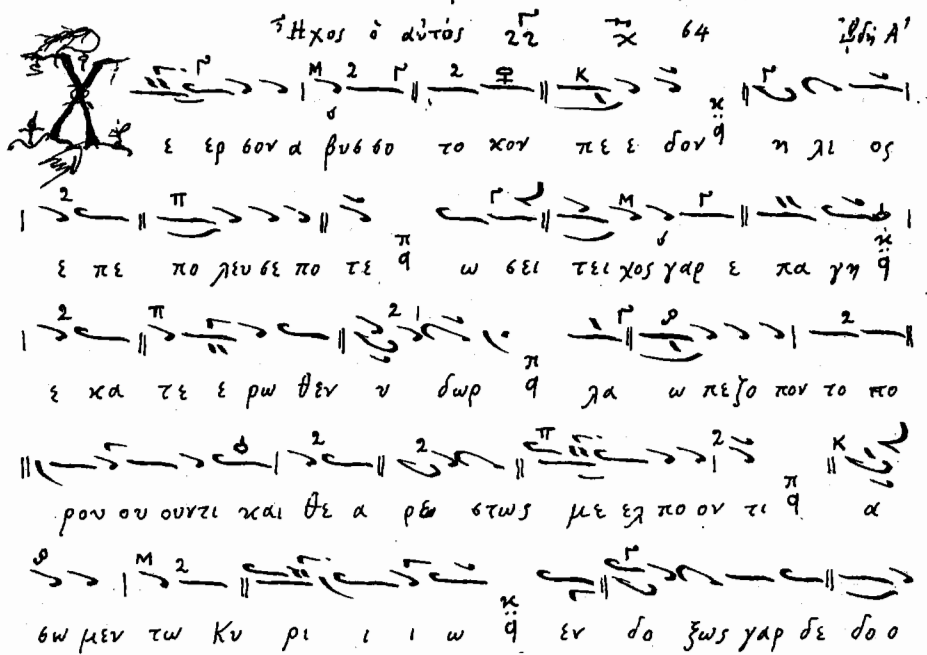 Ἦχος ὁ αὐτός 64 ᾠδὴ Α'
Χ ε ερ σον α βυσ σο το κον πε ε δον η λι ος
ε πε πο λευ σε πο τε ω σει τει χος γαρ ε πα γη
ε κα τε ε ρω θεν υ δωρ λα ω πεζο πον το πο
ρου ου ουντι και θε α ρε στως με ελ πο ον τι α
σω μεν τω Κυ ρι ι ι ω εν δο ξως γαρ δε δο ο